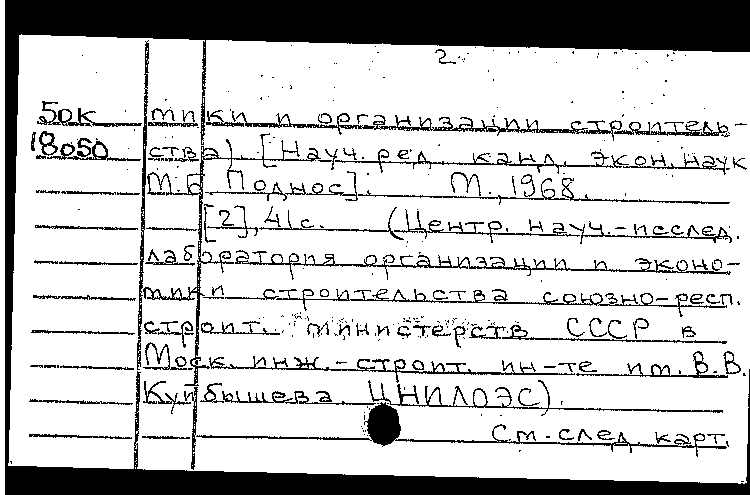 2
50к мики и организации строитель-
18050 ства). [Науч. ред. канд. экон. наук
М.Б. Поднос]. М., 1968.
[2], 41 с. (Центр. науч.-исслед.
лаборатория организации и эконо-
мики строительства союзно-респ.
строит. министерств СССР в
Моск. инж.-строит. ин-те им. В.В.
Куйбышева. ЦНИЛОЭС).
См. след. карт.